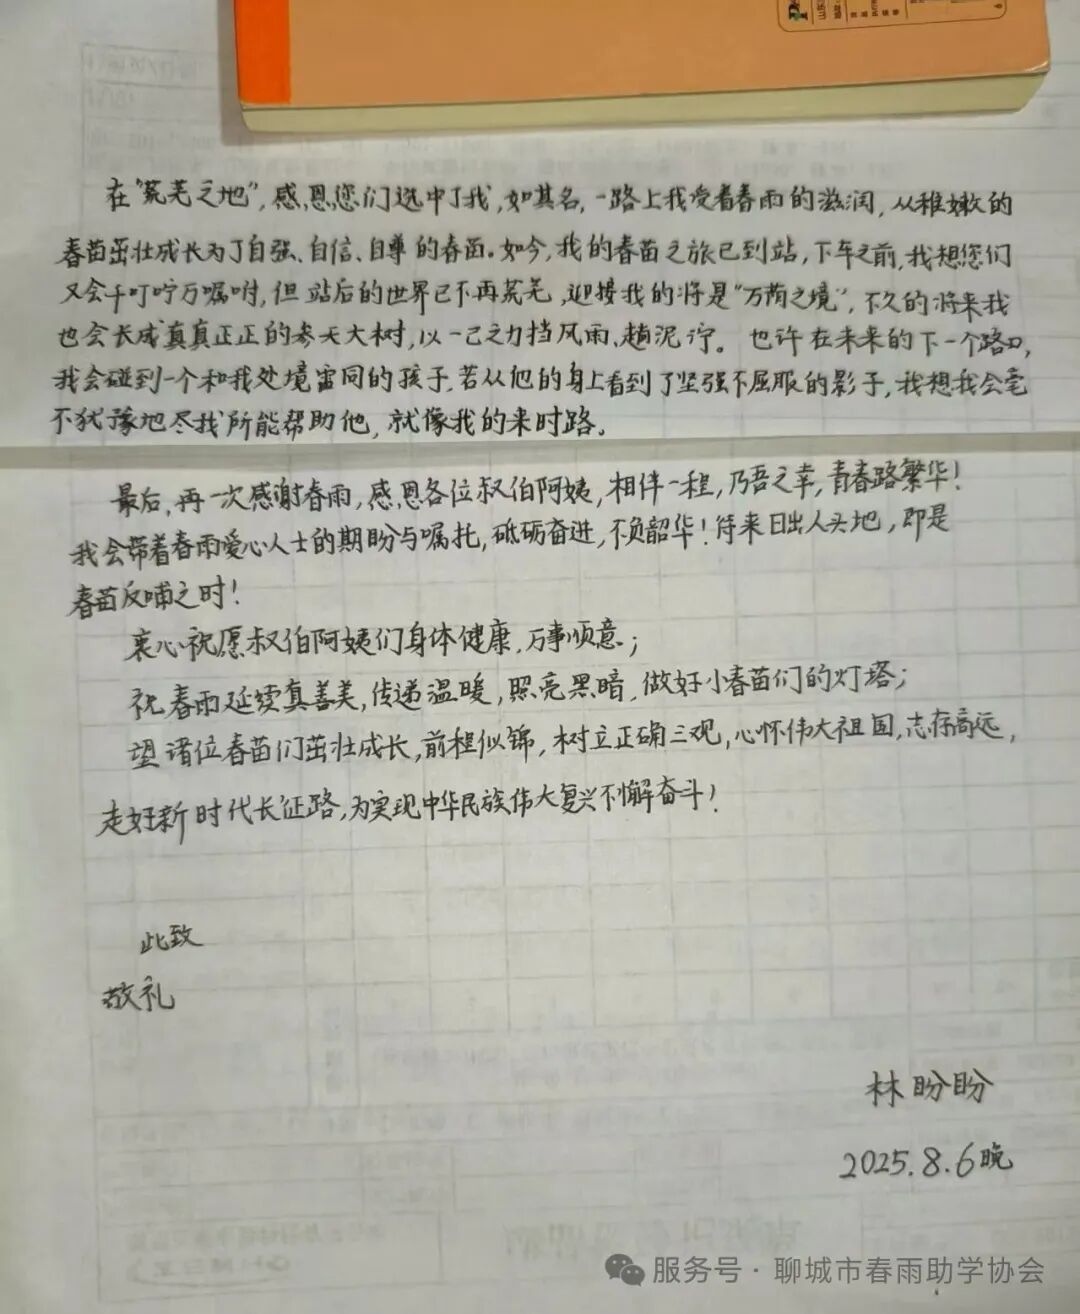 在“荒芜之地”,感恩您们选中了我,如其名,一路上我受着春雨的滋润,从稚嫩的
春苗茁壮成长为了自强、自信、自尊的春苗。如今,我的春苗之旅已到站,下车之前,我想您们
又会千叮咛万嘱咐,但站后的世界已不再荒芜,迎接我的将是“万荫之境”,不久的将来我
也会长成真真正正的参天大树,以一己之力挡风雨、趟泥泞。也许在未来的下一个路口,
我会碰到一个和我处境雷同的孩子,若从他的身上看到了坚强不屈服的影子,我想我会毫
不犹豫地尽我所能帮助他,就像我的来时路。
最后,再一次感谢春雨,感恩各位叔伯阿姨,相伴一程,乃吾之幸,青春路繁华!
我会带着春雨爱心人士的期盼与嘱托,砥砺奋进,不负韶华!待来日出人头地,即是
春苗反哺之时!
衷心祝愿叔伯阿姨们身体健康,万事顺意;
祝春雨延续真善美,传递温暖,照亮黑暗,做好小春苗们的灯塔;
望诸位春苗们茁壮成长,前程似锦,树立正确三观,心怀伟大祖国,志存高远,
走好新时代长征路,为实现中华民族伟大复兴不懈奋斗!
此致
敬礼
林盼盼
2025.8.6晚
服务号·聊城市春雨助学协会